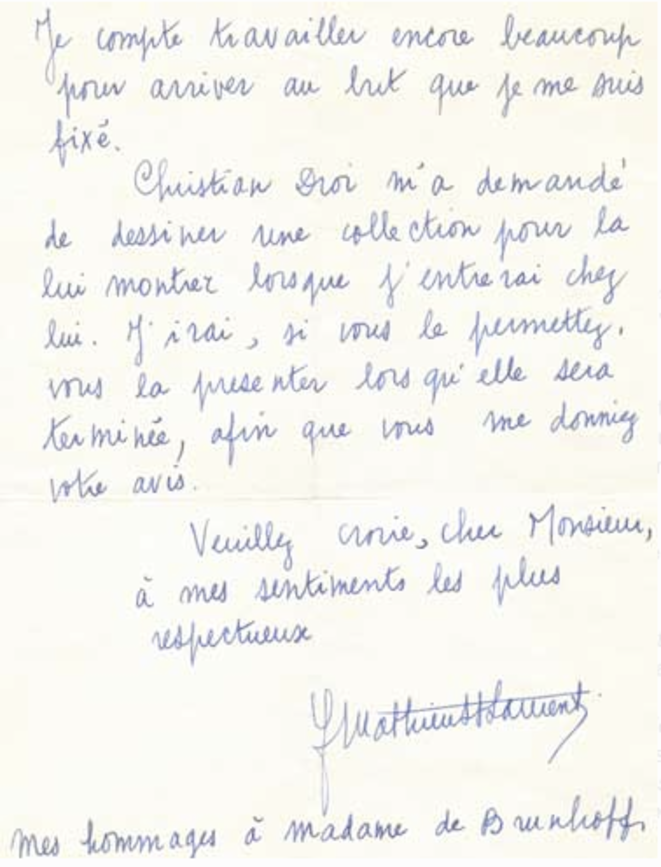 Je compte travailler encore beaucoup
pour arriver au but que je me suis
fixé.
Christian Dior m'a demandé
de dessiner une collection pour la
lui montrer lorsque j'entrerai chez
lui. J'irai, si vous le permettez,
vous la presenter lorsqu'elle sera
terminée, afin que vous me donniez
votre avis.
Veuillez croire, cher Monsieur,
à mes sentiments les plus
respectueux
YMathieuStLaurent
mes hommages à madame de Brunhoff.